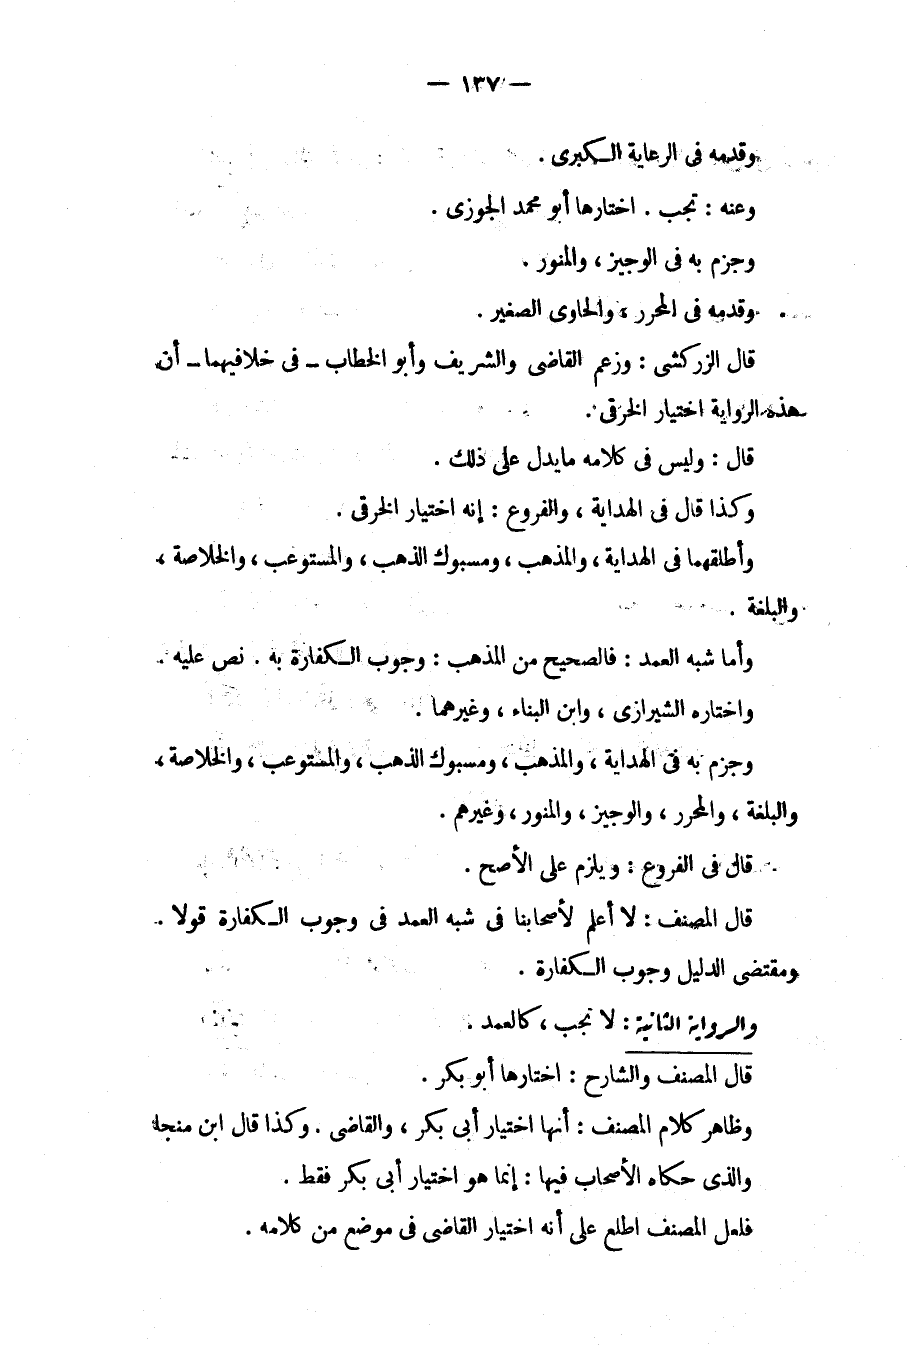 — ١٣٧ —
وقدمه فى الرعاية الكبرى .
وعنه : تجب . اختارها أبو محمد الجوزى .
وجزم به فى الوجيز ، والمنور .
وقدمه فى المحرر ، والحاوى الصغير .
قال الزركشى : وزعم القاضى والشريف وأبو الخطاب ــ فى خلافيهما ــ أن
هذه الرواية اختيار الخرقى .
قال : وليس فى كلامه مايدل على ذلك .
وكذا قال فى الهداية ، والفروع : إنه اختيار الخرقى .
وأطلقهما فى الهداية ، والمذهب ، ومسبوك الذهب ، والمستوعب ، والخلاصة ،
والبلغة .
وأما شبه العمد : فالصحيح من المذهب : وجوب الكفارة به . نص عليه .
واختاره الشيرازى ، وابن البناء ، وغيرهما .
وجزم به فى الهداية ، والمذهب ، ومسبوك الذهب ، والمستوعب ، والخلاصة ،
والبلغة ، والمحرر ، والوجيز ، والمنور ، وغيرهم .
قال فى الفروع : ويلزم على الأصح .
قال المصنف : لا أعلم لأصحابنا فى شبه العمد فى وجوب الكفارة قولا .
ومقتضى الدليل وجوب الكفارة .
والرواية الثانية : لا تجب ، كالعمد .
قال المصنف والشارح : اختارها أبو بكر .
وظاهر كلام المصنف : أنها اختيار أبى بكر ، والقاضى . وكذا قال ابن منجا
والذى حكاه الأصحاب فيها : إنما هو اختيار أبى بكر فقط .
فلعل المصنف اطلع على أنه اختيار القاضى فى موضع من كلامه .